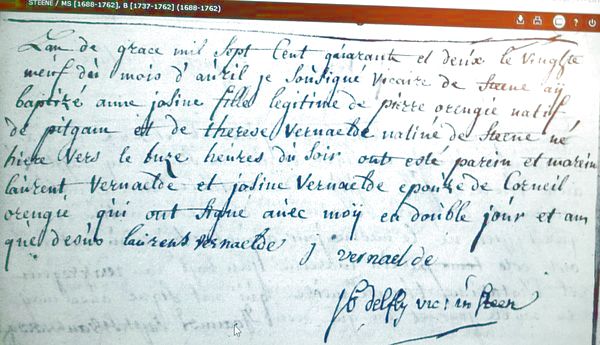 STEENE / MS [1688-1762], B [1737-1762] (1688-1762)
Lan de grace mil sept Cent quarante et deux le vingte
neuf du mois d'avril je sousigné vicaire de steene ay
baptizé anne josine fille legitime de pierre orengié natif
de pitgam et de therese vernaelde natiue de steene né
hiere vers le unze heures du soir ont esté parein et marein
laurent vernaelde et josine vernaelde epouze de Corneil
orengié qui ont signé avec moy en double jour et an
que desus laurens vernaelde j vernaelde
delfly vic: in steen